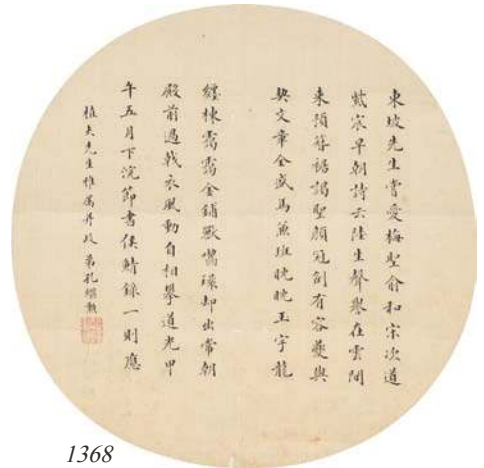 東坡先生嘗愛梅聖俞和宋次道
紫宸早朝詩云陸生聲譽在雲間
来預簪裾謁聖顔冠劍有容夔與
契文章全盛馬兼班晥晥玉宇龍
纏棟靄靄金鋪獸嚙環却出常朝
殿前過戟衣風動自相攀道光甲
午五月下浣節書侯鯖錄一則應
植夫先生雅屬并政 弟孔繼勲
1368